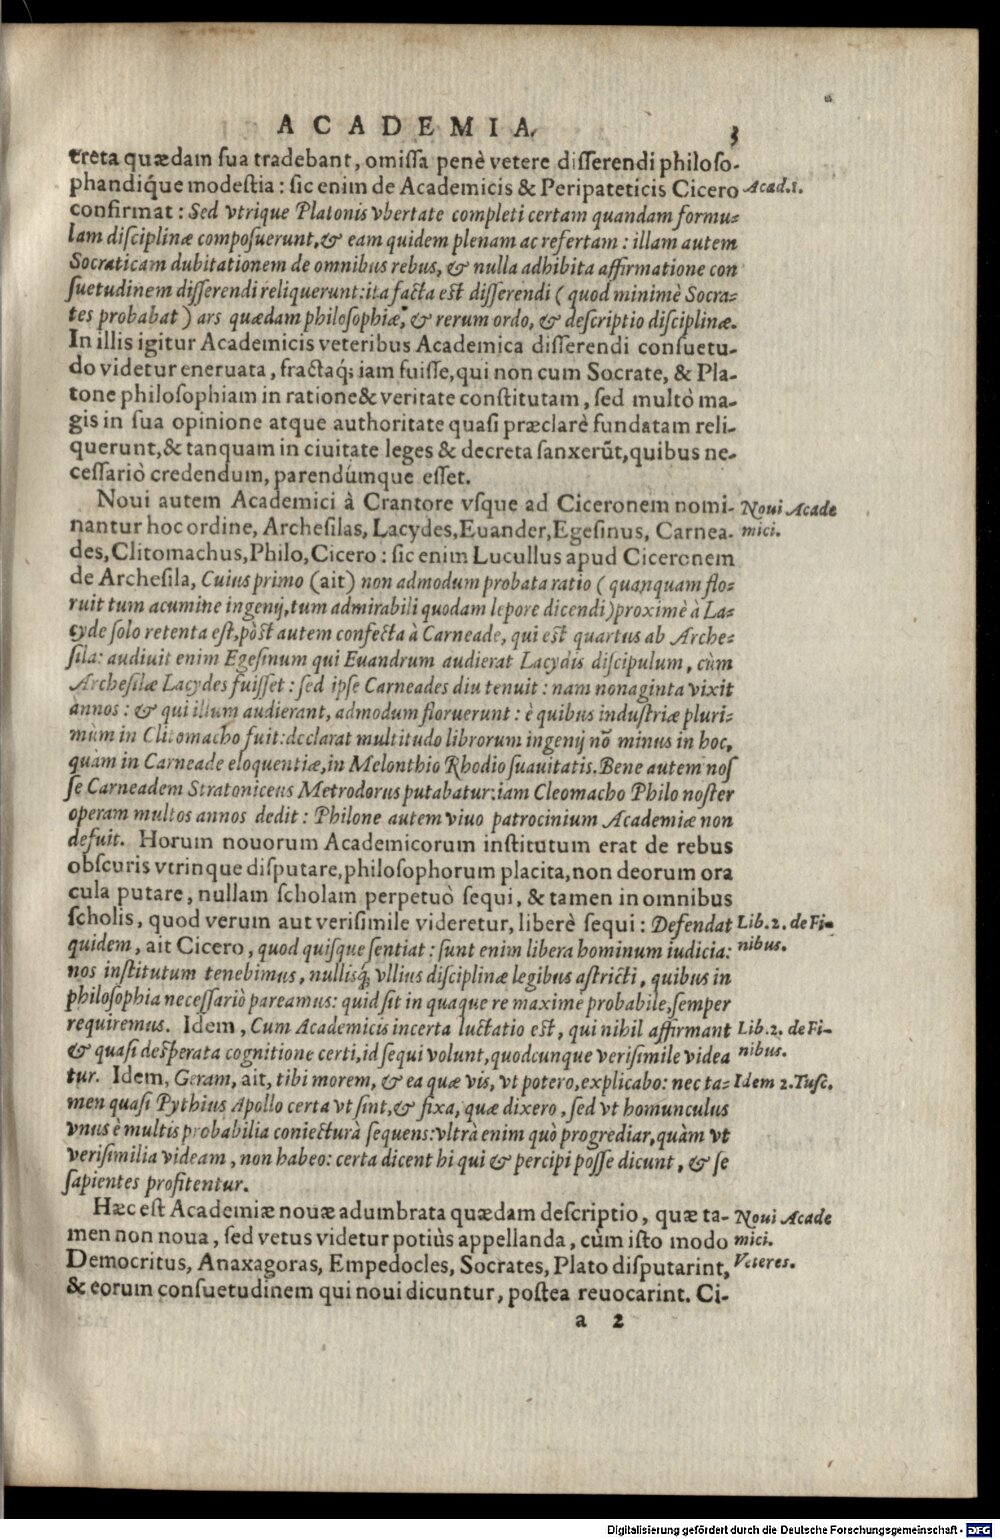 ACADEMIA. 3
creta quædam sua tradebant, omissa penè vetere disserendi philoso-
phandíque modestia : sic enim de Academicis & Peripateticis Cicero
Acad.1.
confirmat : Sed vtrique Platonis vbertate completi certam quandam formu-
lam disciplinæ composuerunt, & eam quidem plenam ac refertam : illam autem
Socraticam dubitationem de omnibus rebus, & nulla adhibita affirmatione con
suetudinem disserendi reliquerunt: ita facta est disserendi ( quod minimè Socra-
tes probabat ) ars quædam philosophiæ, & rerum ordo, & descriptio disciplinæ.
In illis igitur Academicis veteribus Academica disserendi consuetu-
do videtur eneruata, fractaq; iam fuisse, qui non cum Socrate, & Pla-
tone philosophiam in ratione & veritate constitutam, sed multò ma-
gis in sua opinione atque authoritate quasi præclarè fundatam reli-
querunt, & tanquam in ciuitate leges & decreta sanxerũt, quibus ne-
cessariò credendum, parendúmque esset.
Noui autem Academici à Crantore vsque ad Ciceronem nomi-
Noui Acade
nantur hoc ordine, Archesilas, Lacydes, Euander, Egesinus, Carnea-
mici.
des, Clitomachus, Philo, Cicero : sic enim Lucullus apud Ciceronem
de Archesila, Cuius primo (ait) non admodum probata ratio ( quanquam flo-
ruit tum acumine ingenij, tum admirabili quodam lepore dicendi) proximè à La-
cyde solo retenta est, pòst autem confecta à Carneade, qui est quartus ab Arche-
sila: audiuit enim Egesinum qui Euandrum audierat Lacydis discipulum, cùm
Archesilæ Lacydes fuisset : sed ipse Carneades diu tenuit : nam nonaginta vixit
annos : & qui illum audierant, admodum floruerunt : è quibus industriæ pluri-
mùm in Clitomacho fuit: declarat multitudo librorum ingenij nõ minus in hoc,
quàm in Carneade eloquentiæ, in Melonthio Rhodio suauitatis. Bene autem nos
se Carneadem Stratoniceus Metrodorus putabatur: iam Cleomacho Philo noster
operam multos annos dedit : Philone autem viuo patrocinium Academiæ non
defuit. Horum nouorum Academicorum institutum erat de rebus
obscuris vtrinque disputare, philosophorum placita, non deorum ora
cula putare, nullam scholam perpetuò sequi, & tamen in omnibus
scholis, quod verum aut verisimile videretur, liberè sequi : Defendat
Lib.2. de Fi-
quidem, ait Cicero, quod quisque sentiat : sunt enim libera hominum iudicia:
nibus.
nos institutum tenebimus, nullisq; vllius disciplinæ legibus astricti, quibus in
philosophia necessariò pareamus: quid sit in quaque re maxime probabile, semper
requiremus. Idem, Cum Academicis incerta luctatio est, qui nihil affirmant
Lib.2. de Fi-
& quasi desperata cognitione certi, id sequi volunt, quodcunque verisimile videa
nibus.
tur. Idem, Geram, ait, tibi morem, & ea quæ vis, vt potero, explicabo: nec ta-
Idem 2. Tusc.
men quasi Pythius Apollo certa vt sint, & fixa, quæ dixero, sed vt homunculus
vnus è multis probabilia coniecturâ sequens: vltrà enim quò progrediar, quàm vt
verisimilia videam, non habeo: certa dicent hi qui & percipi posse dicunt, & se
sapientes profitentur.
Hæc est Academiæ nouæ adumbrata quædam descriptio, quæ ta-
Noui Acade
men non noua, sed vetus videtur potiùs appellanda, cùm isto modo
mici.
Democritus, Anaxagoras, Empedocles, Socrates, Plato disputarint,
Veteres.
& eorum consuetudinem qui noui dicuntur, postea reuocarint. Ci-
a 2
Digitalisierung gefördert durch die Deutsche Forschungsgemeinschaft - DFG